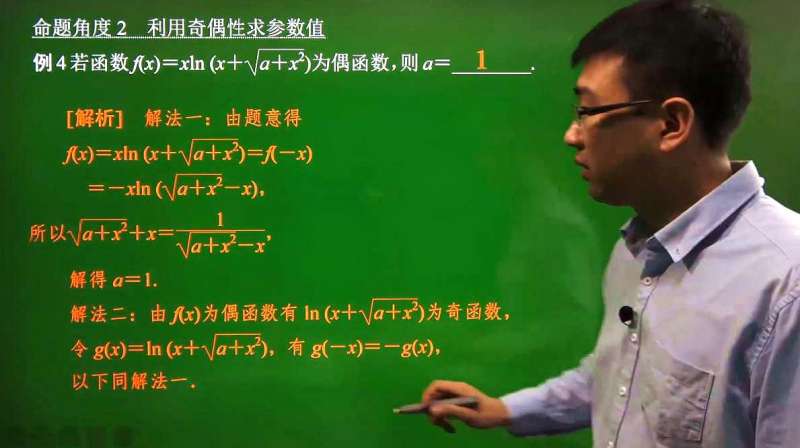 命题角度2 利用奇偶性求参数值
例4 若函数f(x)=xln (x+√(a+x²))为偶函数,则a=___1___.
[解析] 解法一：由题意得
f(x)=xln (x+√(a+x²))=f(-x)
=-xln (√(a+x²)-x),
所以√(a+x²)+x=1/(√(a+x²)-x),
解得 a=1.
解法二：由 f(x)为偶函数有 ln (x+√(a+x²))为奇函数,
令 g(x)=ln (x+√(a+x²)), 有 g(-x)=-g(x),
以下同解法一.